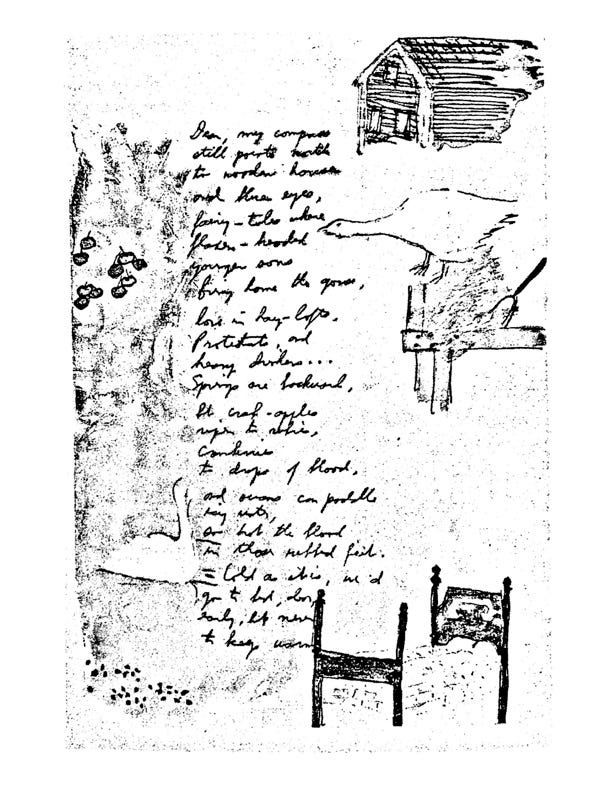 Dear, my compass
still points north
to wooden houses
and blue eyes,
fairy-tales where
flaxen-headed
younger sons
bring home the goose,
love in hay-lofts,
Protestants, and
heavy drinkers...
Springs are backward,
but crab-apples
ripen to rubies,
cranberries
to drops of blood,
and swans can paddle
icy water,
so hot the blood
in those webbed feet.
– Cold as it is, we'd
go to bed, dear,
early, but never
to keep warm